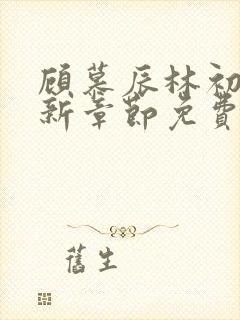 顾慕辰林初
新章節免費
舊生